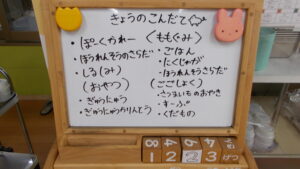 きょうのこんだて
ぽーくかれー
ほうれんそうのさらだ
しる(みそ)
(おやつ)
・ぎゅうにゅう
・ぎゅうにゅうかりんとう
(ももぐみ)
・ごはん
・にくじゃが
・ほうれんそうさらだ
(ごごしょく)
・さつまいものおやき
・すーぷ
・くだもの